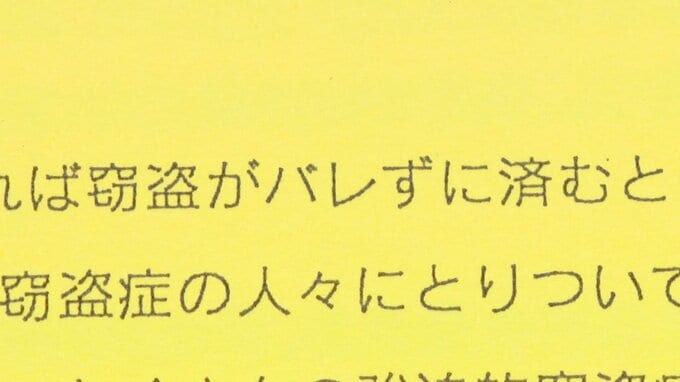 れば窃盗がバレずに済むと
窃盗症の人々にとりついて
の強迫的窃盗